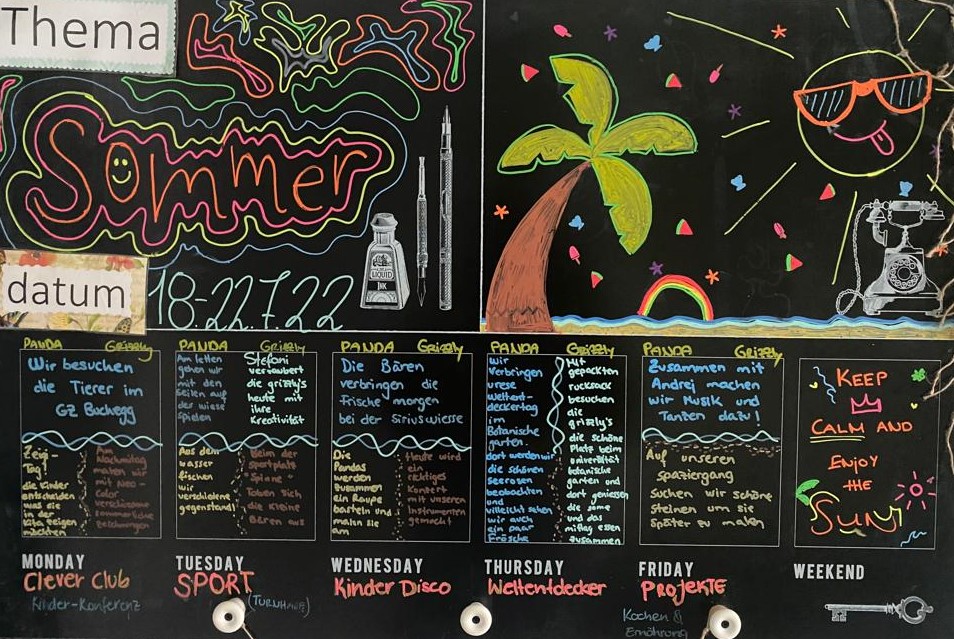 Thema
Sommer
LIQUID
INK
datum
18-22.7.22
PANDA Grizzly
Wir besuchen
die Tierer im
GZ Buchegg
Zeig-
Tag!
die Kinder
entscheiden
was sie
in der
Kita zeigen
möchten
Am
Nachmittag
malen wir
mit Neo-
color
verschiedene
zeichnungen
MONDAY
Clever Club
Kinder-Konferenz
PANDA Grizzly
Am letten
gehen wir
mit den
Seilen auf
der wiese
spielen
Stefani
verzaubert
die grizzly's
heute mit
ihre
Kreativität
Aus dem
wasser
fischen
wir
verschiedene
gegenstand!
Beim der
sportplatz
Toben sich
die kleine
Bären aus
TUESDAY
SPORT
(TURNHALLE)
PANDA Grizzly
Die Bären
verbringen die
frische morgen
bei der Siriuswiesse
Die
Pandas
werden
zusammen
ein Raupe
basteln und
malen sie
am
Heute wird
ein
richtiges
Konzert
mit unseren
Instrumenten
gemacht
WEDNESDAY
Kinder Disco
PANDA Grizzly
Wir
Verbringen
urese
weltent-
deckertag
im
Botanische
garten.
dort werden wir
die schönen
Seerosen
beobachten
und
villeicht sehen
wir auch
ein paar
Frösche
Mit
gepackten
rucksack
besuchen
die
grizzly's
die schöne
Platz beim
universität
botanische
garten und
dort geniessen
die sonne
und das
mittag essen
zusammen
THURSDAY
Weltentdecker
PANDA Grizzly
Zusammen mit
Andrej machen
wir Musik und
Tanten dazu!
Auf unseren
spaziergang
suchen wir schöne
steinen um sie
später zu malen
FRIDAY
PROJEKTE
Kochen &
Ernährung
KEEP
CALM AND
ENJOY
THE
SUN!
WEEKEND